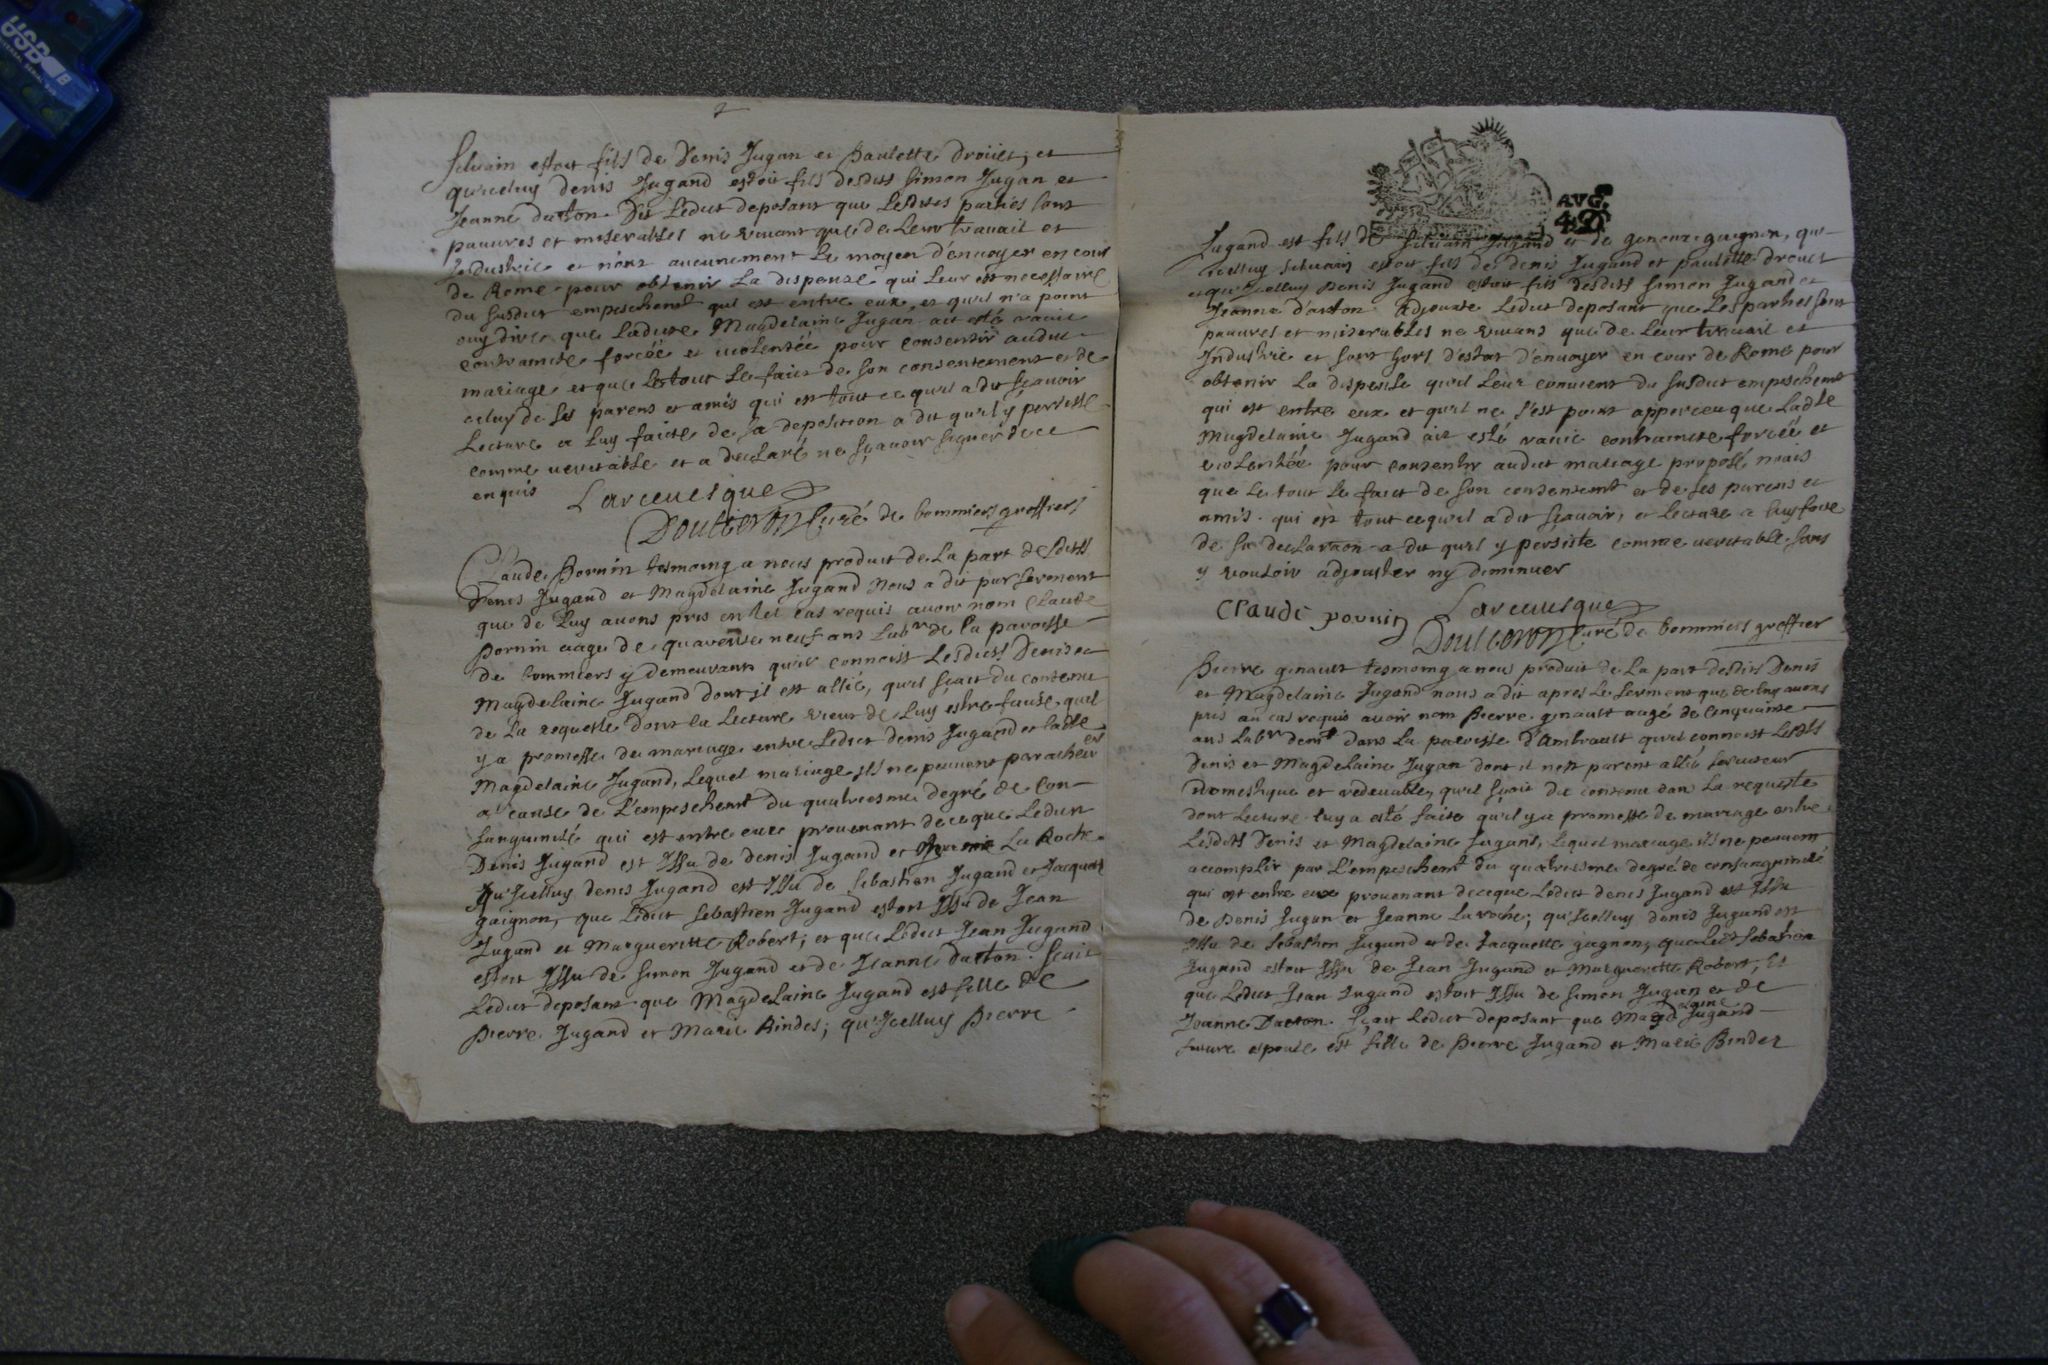 Silvain estoit fils de Denis Jugan et Paulette Drouet, et
qu'iceluy Denis Jugand estoit fils desdits Simon Jugan et
Jeanne Darton. Dit ledict deposant que lesdites parties sont
pauures et miserables ne viuant que de leur trauail et
Industrie et n'ont aucunement le moyen d'enuoyer en cour
de Rome pour obtenir la dispense qui leur est necessaire
du susdict empeschemt qui est entre eux, et qu'il n'a point
ouy dire que ladite Magdelaine Jugan ait esté rauie
contrainte forcée et violentée pour consentir audict
mariage et que le tout se faict de son consentement et de
celuy de ses parens et amis qui est tout ce qu'il a dit sçauoir
Lecture a luy faicte de sa deposition a dit qu'il y persiste
comme veritable et a declaré ne sçauoir signer de ce
enquis Larceuesque
Doulceron Curé de bommiers greffier
Claude Pornin tesmoing a nous produict de la part desdits
Denis Jugand et Magdelaine Jugand Nous a dit par serment
que de luy auons pris en tel cas requis auoir nom Claude
Pornin aagé de quarente neuf ans labr de la paroisse
de bommiers y demeurant qu'il connoist lesdits Denis et
Magdelaine Jugand dont il est allié, qu'il sçait du contenu
de la requeste dont la lecture vient de luy estre faicte qu'il
y a promesse de mariage entre ledict Denis Jugand et ladte
Magdelaine Jugand, lequel mariage ils ne peuuent paracheuer
a cause de l'empeschemt du quatriesme degré de con-
sanguinité qui est entre eux prouenant de ce que ledict
Denis Jugand est Issu de Denis Jugand et La Roche
qu'Icelluy Denis Jugand est Issu de Sebastien Jugand et Jacquette
gaignon, que ledict Sebastien Jugand estoit Issu de Jean
Jugand et Marguerite Robert; et que ledict Jean Jugand
estoit Issu de Simon Jugand et de Jeanne Darton. Sçait
ledict deposant que Magdelaine Jugand est fille de
Pierre Jugand et Marie Bindes; qu'Icelluy Pierre
AVG.
Jugand est fils de Siluain Jugand et de geneure gaignon, qu-
icelluy Siluain estoit fils de Denis Jugand et paulette Drouet
et qu'Icelluy Denis Jugand estoit fils desdits Simon Jugand et
Jeanne d'arton adjouste ledict deposant que les parties sont
pauures et miserables ne viuans que de leur trauail et
Industrie et sont hors d'estat d'enuoyer en cour de Rome pour
obtenir la dispense qu'il leur conuient du susdict empeschemt
qui est entre eux et qu'il ne s'est point apperceu que ladte
Magdelaine Jugand ait esté rauie contrainte forcée et
violentée pour consentir audict mariage proposé mais
que le tout se faict de son consensemt et de ses parens et
amis. qui est tout ce qu'il a dit sçauoir, et lecture a luy faite
de sa declaraon a dit qu'il y persiste comme veritable sans
y vouloir adjouster ny diminuer
Claude pornin Larceuesque
Doulceron Curé de bommiers greffier
Pierre genault tesmoing a nous produict de la part desdits Denis
et Magdelaine Jugand nous a dit apres le serment que de luy auons
pris au cas requis auoir nom Pierre genault aagé de cinquante
ans labr demt dans la paroisse d'Ambrault qu'il connoist lesdts
Denis et Magdelaine Jugan dont il n'est parent allié seruiteur
Domestique et redeuable, qu'il sçait du contenu dans la requeste
dont lecture luy a esté faite qu'il y a promesse de mariage entre
lesdits Denis et Magdelaine Jugand, lequel mariage ils ne peuuent
accomplir par l'empeschemt du quatriesme degré de consanguinité
qui est entre eux prouenant de ce que ledict Denis Jugand est Issu
de Denis Jugan et Jeanne Laroche; qu'Icelluy Denis Jugand est
Issu de Sebastien Jugand et de Jacquette gagnon, que ledt Sebastien
Jugand estoit Issu de Jean Jugand et Marguerite Robert, Et
que ledict Jean Jugand estoit Issu de Simon Jugan et de
Jeanne Darton. Sçait ledict deposant que Magdelaine Jugand
future espouse est fille de Pierre Jugand et Marie Bindes